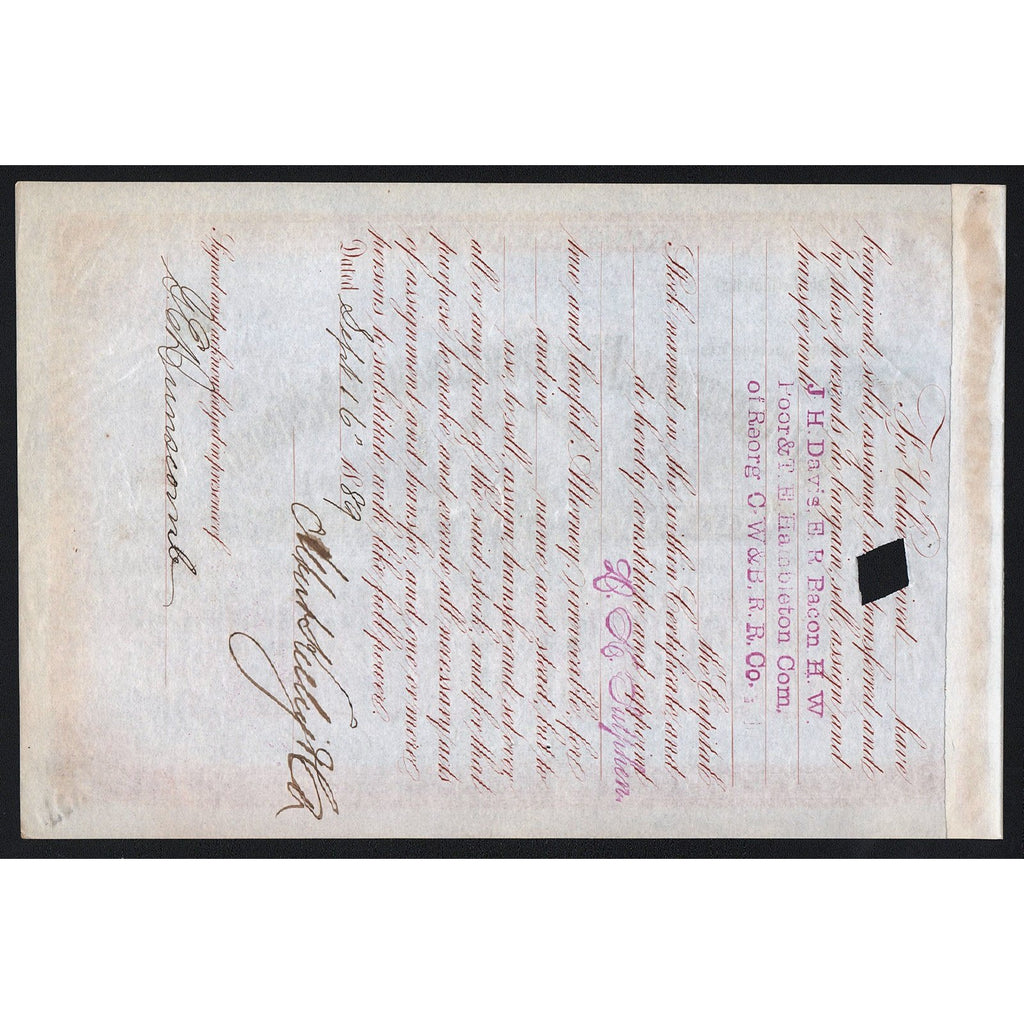 For Value Received have
bargained, sold, assigned and transferred and
by these presents do bargain, sell, assign and
transfer unto
J H. Davis E R Bacon H. W.
Poor & T. E Hambleton Com.
of Reorg C W & B. R. R. Co.
the Capital
Stock named in the within Certificate and
do hereby constitute and appoint
H. A. Tutphen.
true and lawful Attorney irrevocable for
and in name and stead but to
use, to sell, assign, transfer and set over,
all or any part of the said stock and for that
purpose to make and execute all necessary acts
of assignment and transfer and one or more
persons to substitute with like full power.
Dated Sept 16 1889
Signed and acknowledged in presence of